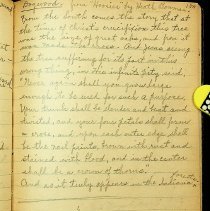 Dogwood from "Hoosier" by Heath Bowman
From the South comes the story that at
the time of Christ's crucifixion this tree
was the size of great oaks, and from it
was made the cross. And Jesus seeing
the tree suffering for its part in this
wrong thing, in His infinite pity, said,
"Never again shall you grow large
enough to be used for such a purpose.
Your trunk shall be slender and bent and
twisted, and your four petals shall form
a cross, and upon each outer edge shall
be the nail prints, brown with rust and
stained with blood, and in the center
shall be a crown of thorns.
And so it truly appears in the Indiana forests.